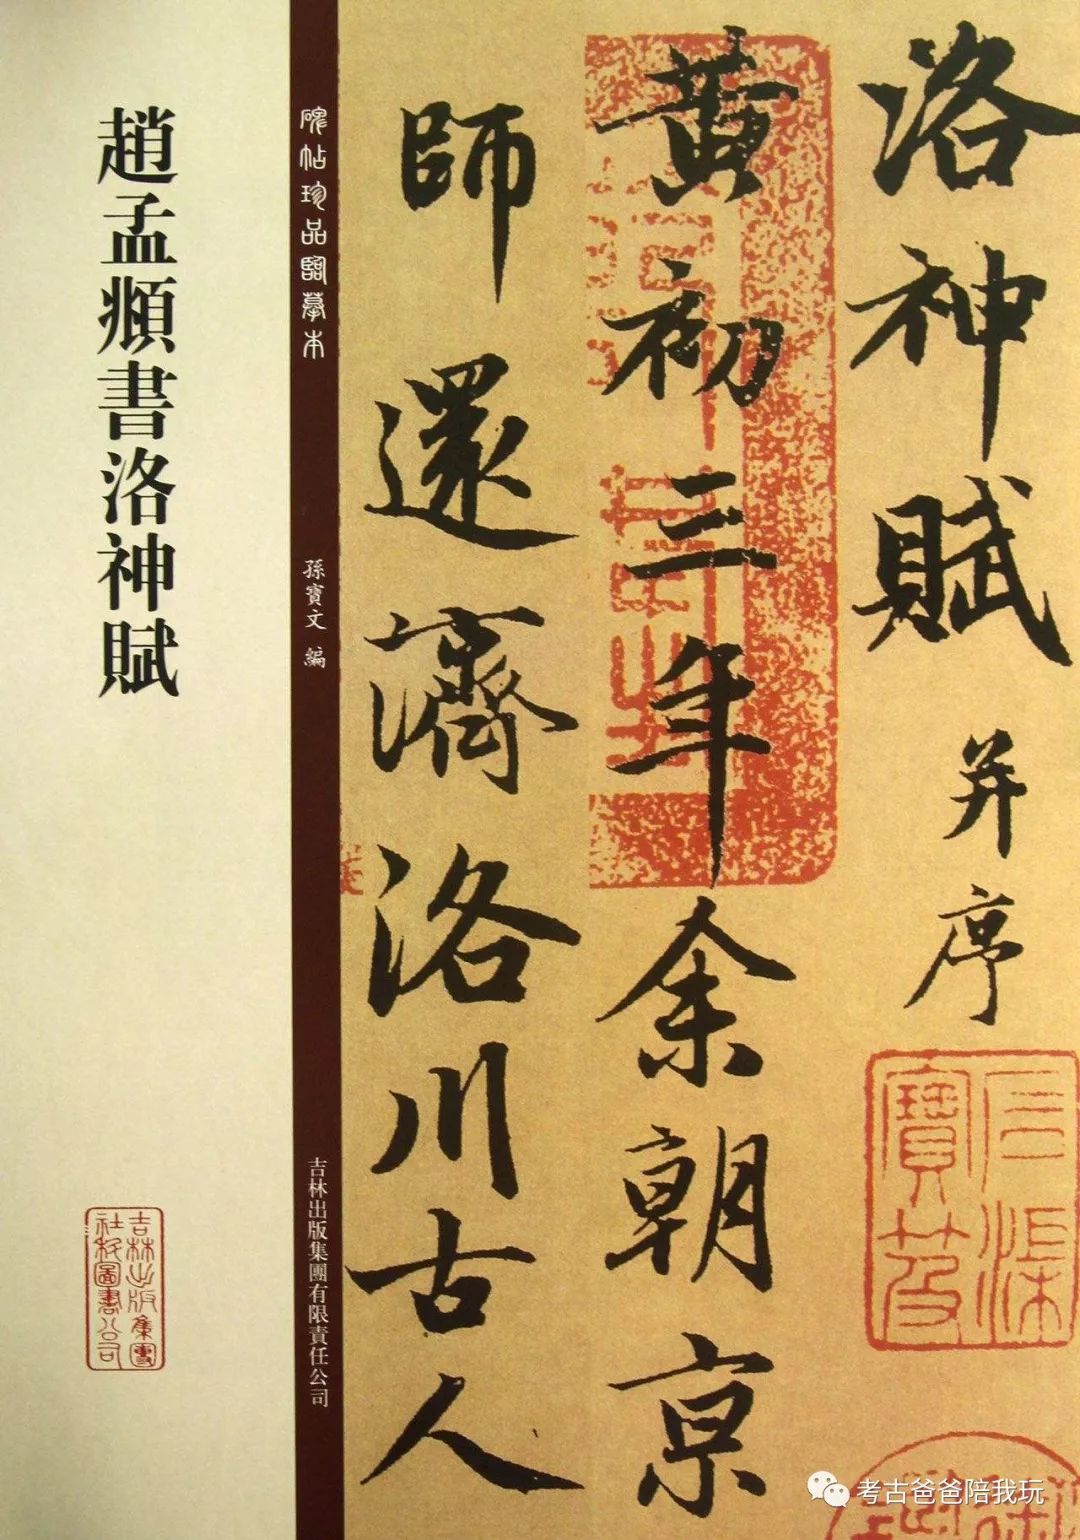 洛神賦 并序
黄初三年余朝京
師還濟洛川古人
碑帖珍品臨摹本
孫寶文 編
吉林出版集團有限責任公司
趙孟頫書洛神賦
吉林出版集團
社科圖書公司
考古爸爸陪我玩